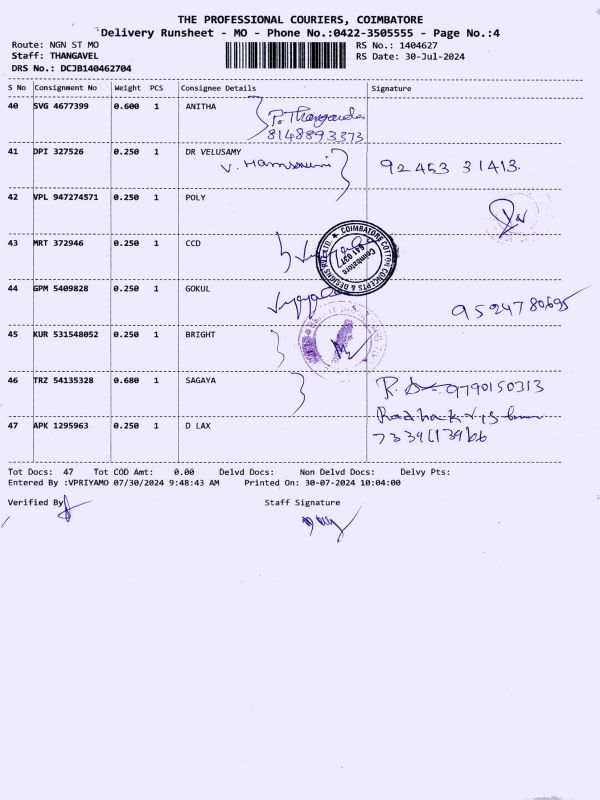 THE PROFESSIONAL COURIERS, COIMBATORE
Delivery Runsheet - MO - Phone No.:0422-3505555 - Page No.:4
Route: NGN ST MO RS No.: 1404627
Staff: THANGAVEL RS Date: 30-Jul-2024
DRS No.: DCJB140462704
S No Consignment No Weight PCS Consignee Details Signature
40 SVG 4677399 0.600 1 ANITHA
8148893373
41 DPI 327526 0.250 1 DR VELUSAMY
92453 31413.
42 VPL 947274571 0.250 1 POLY
43 MRT 372946 0.250 1 CCD
COIMBATORE COTTON CONCEPTS & DESIGNS PVT. LTD. ★
Coimbatore
641 037
44 GPM 5409828 0.250 1 GOKUL
9524780695
45 KUR 531548052 0.250 1 BRIGHT
46 TRZ 54135328 0.680 1 SAGAYA
9790150313
47 APK 1295963 0.250 1 D LAX
Tot Docs: 47 Tot COD Amt: 0.00 Delvd Docs: Non Delvd Docs: Delvy Pts:
Entered By :VPRIYAMO 07/30/2024 9:48:43 AM Printed On: 30-07-2024 10:04:00
Verified By Staff Signature